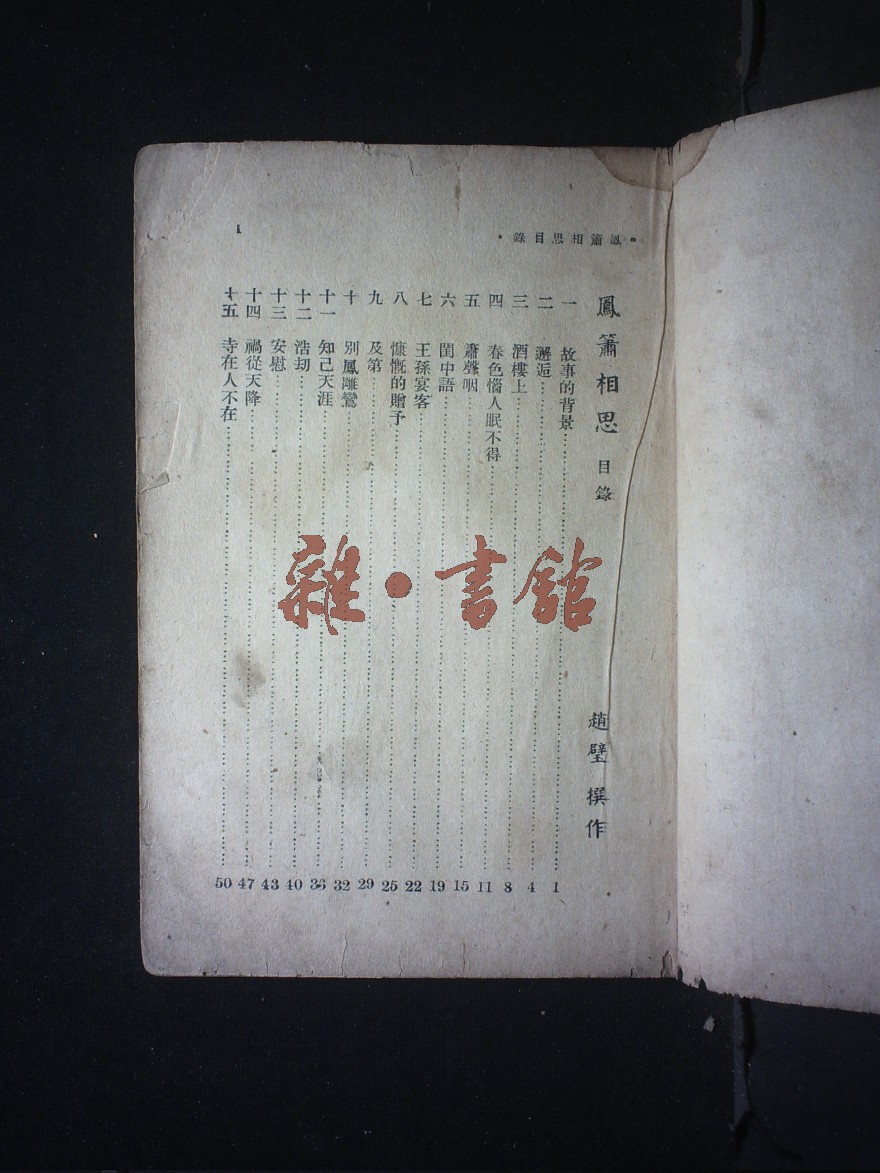 •鳳簫相思目錄•
1
鳳簫相思 目錄
趙璧 撰作
一 故事的背景 1
二 邂逅 4
三 酒樓上 8
四 春色惱人眠不得 11
五 簫聲咽 15
六 閨中語 19
七 王孫宴客 22
八 慷慨的贈予 25
九 及第 29
十 別鳳離鸞 32
十一 知己天涯 36
十二 浩劫 40
十三 安慰 43
十四 禍從天降 47
十五 寺在人不在 50
雜·書館